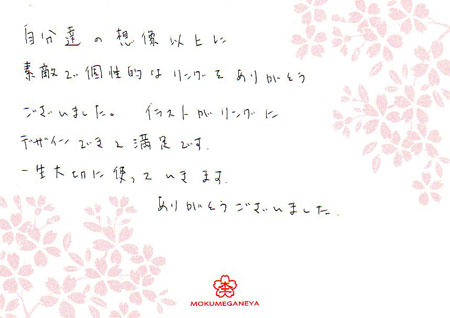 自分達の想像以上に
素敵で個性的なリングをありがとう
ございました。 イラストがリングに
デザインできて満足です。
一生大切に使っていきます。
ありがとうございました。
杢
MOKUMEGANEYA